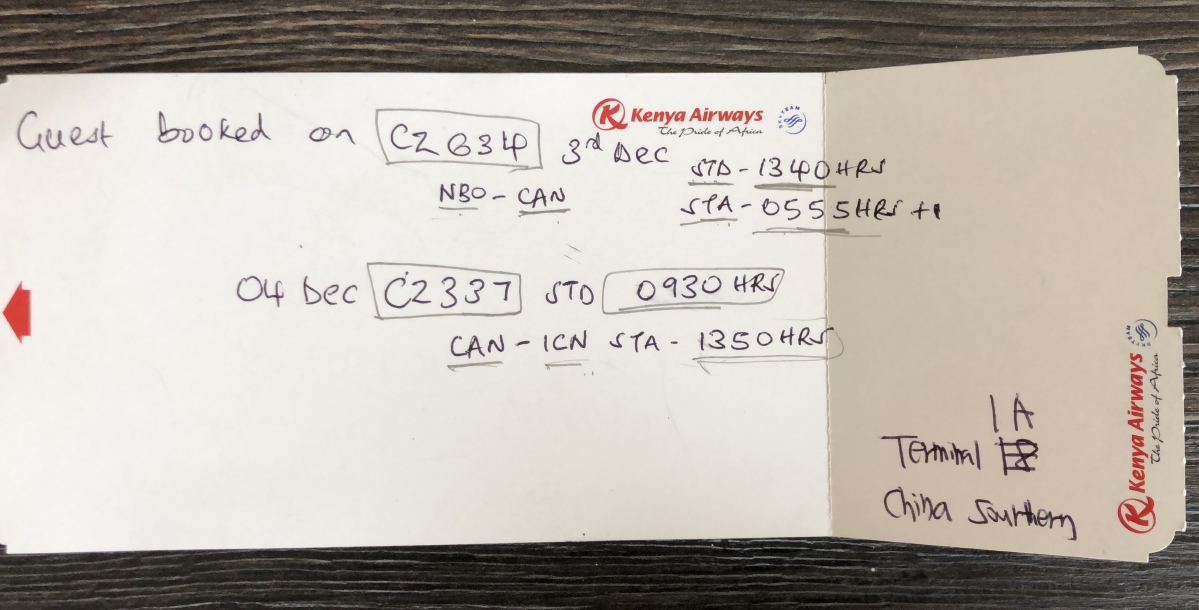 Kenya Airways
The Pride of Africa
SKYTEAM
Guest booked on CZ634 3rd Dec
NBO - CAN
STD - 1340HRS
STA - 0555HRS +1
04 Dec CZ337 STD 0930 HRS
CAN - ICN STA - 1350HRS
1A
Terminal
China Southern
Kenya Airways
The Pride of Africa
SKYTEAM